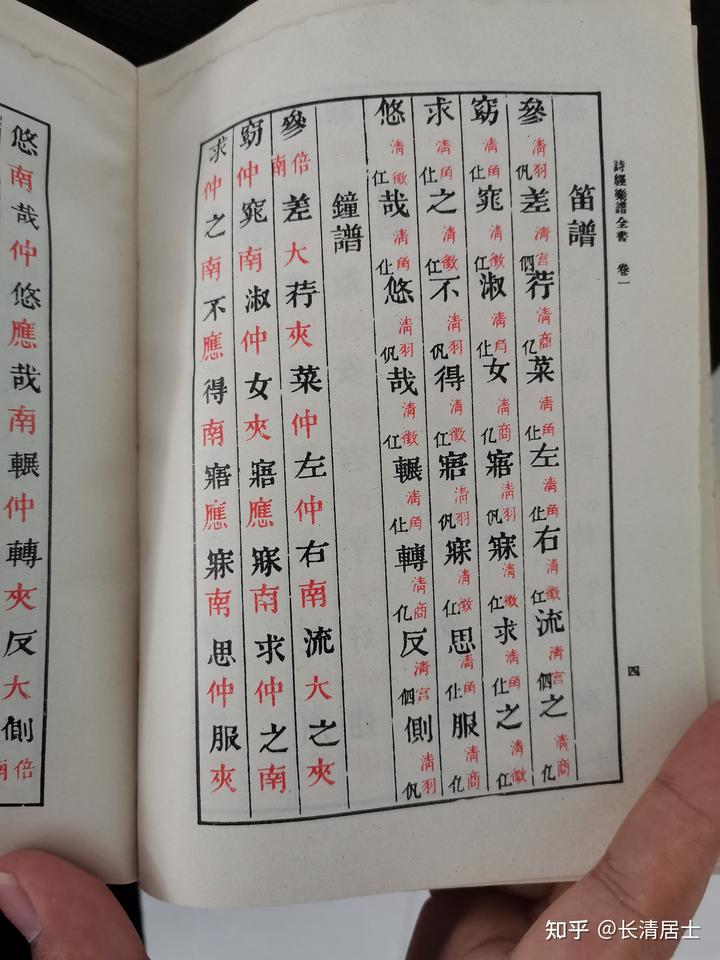 詩經樂譜全書 卷一 四
笛譜
參清羽𠆩差清宮伵荇清商亿菜清角仩左清角仩右清徵仜流清宮伵之清商亿
窈清角仩窕清徵仜淑清角仩女清商亿寤清羽𠆩寐清徵仜求清角仩之清徵仜
求清角仩之清徵仜不清羽𠆩得清徵仜寤清羽𠆩寐清徵仜思清角仩服清商亿
悠清徵仜哉清角仩悠清羽𠆩哉清徵仜輾清角仩轉清商亿反清宮伵側清羽𠆩
鐘譜
參倍南差大荇夾菜仲左仲右南流大之夾
窈仲窕南淑仲女夾寤應寐南求仲之南
求仲之南不應得南寤應寐南思仲服夾
悠南哉仲悠應哉南輾仲轉夾反大側倍南
知乎 @长清居士